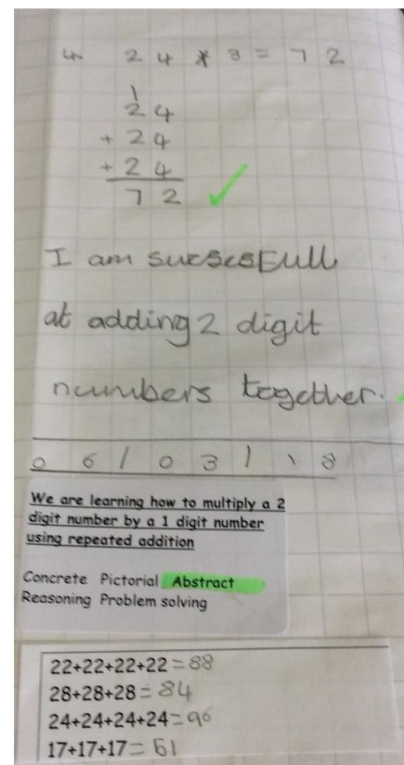 4. 24 * 3 = 72
1
24
+ 24
+ 24
72
I am sucsesfull
at adding 2 digit
numbers together.
06/03/18
We are learning how to multiply a 2
digit number by a 1 digit number
using repeated addition
Concrete Pictorial Abstract
Reasoning Problem solving
22+22+22+22=88
28+28+28=84
24+24+24+24=96
17+17+17=51